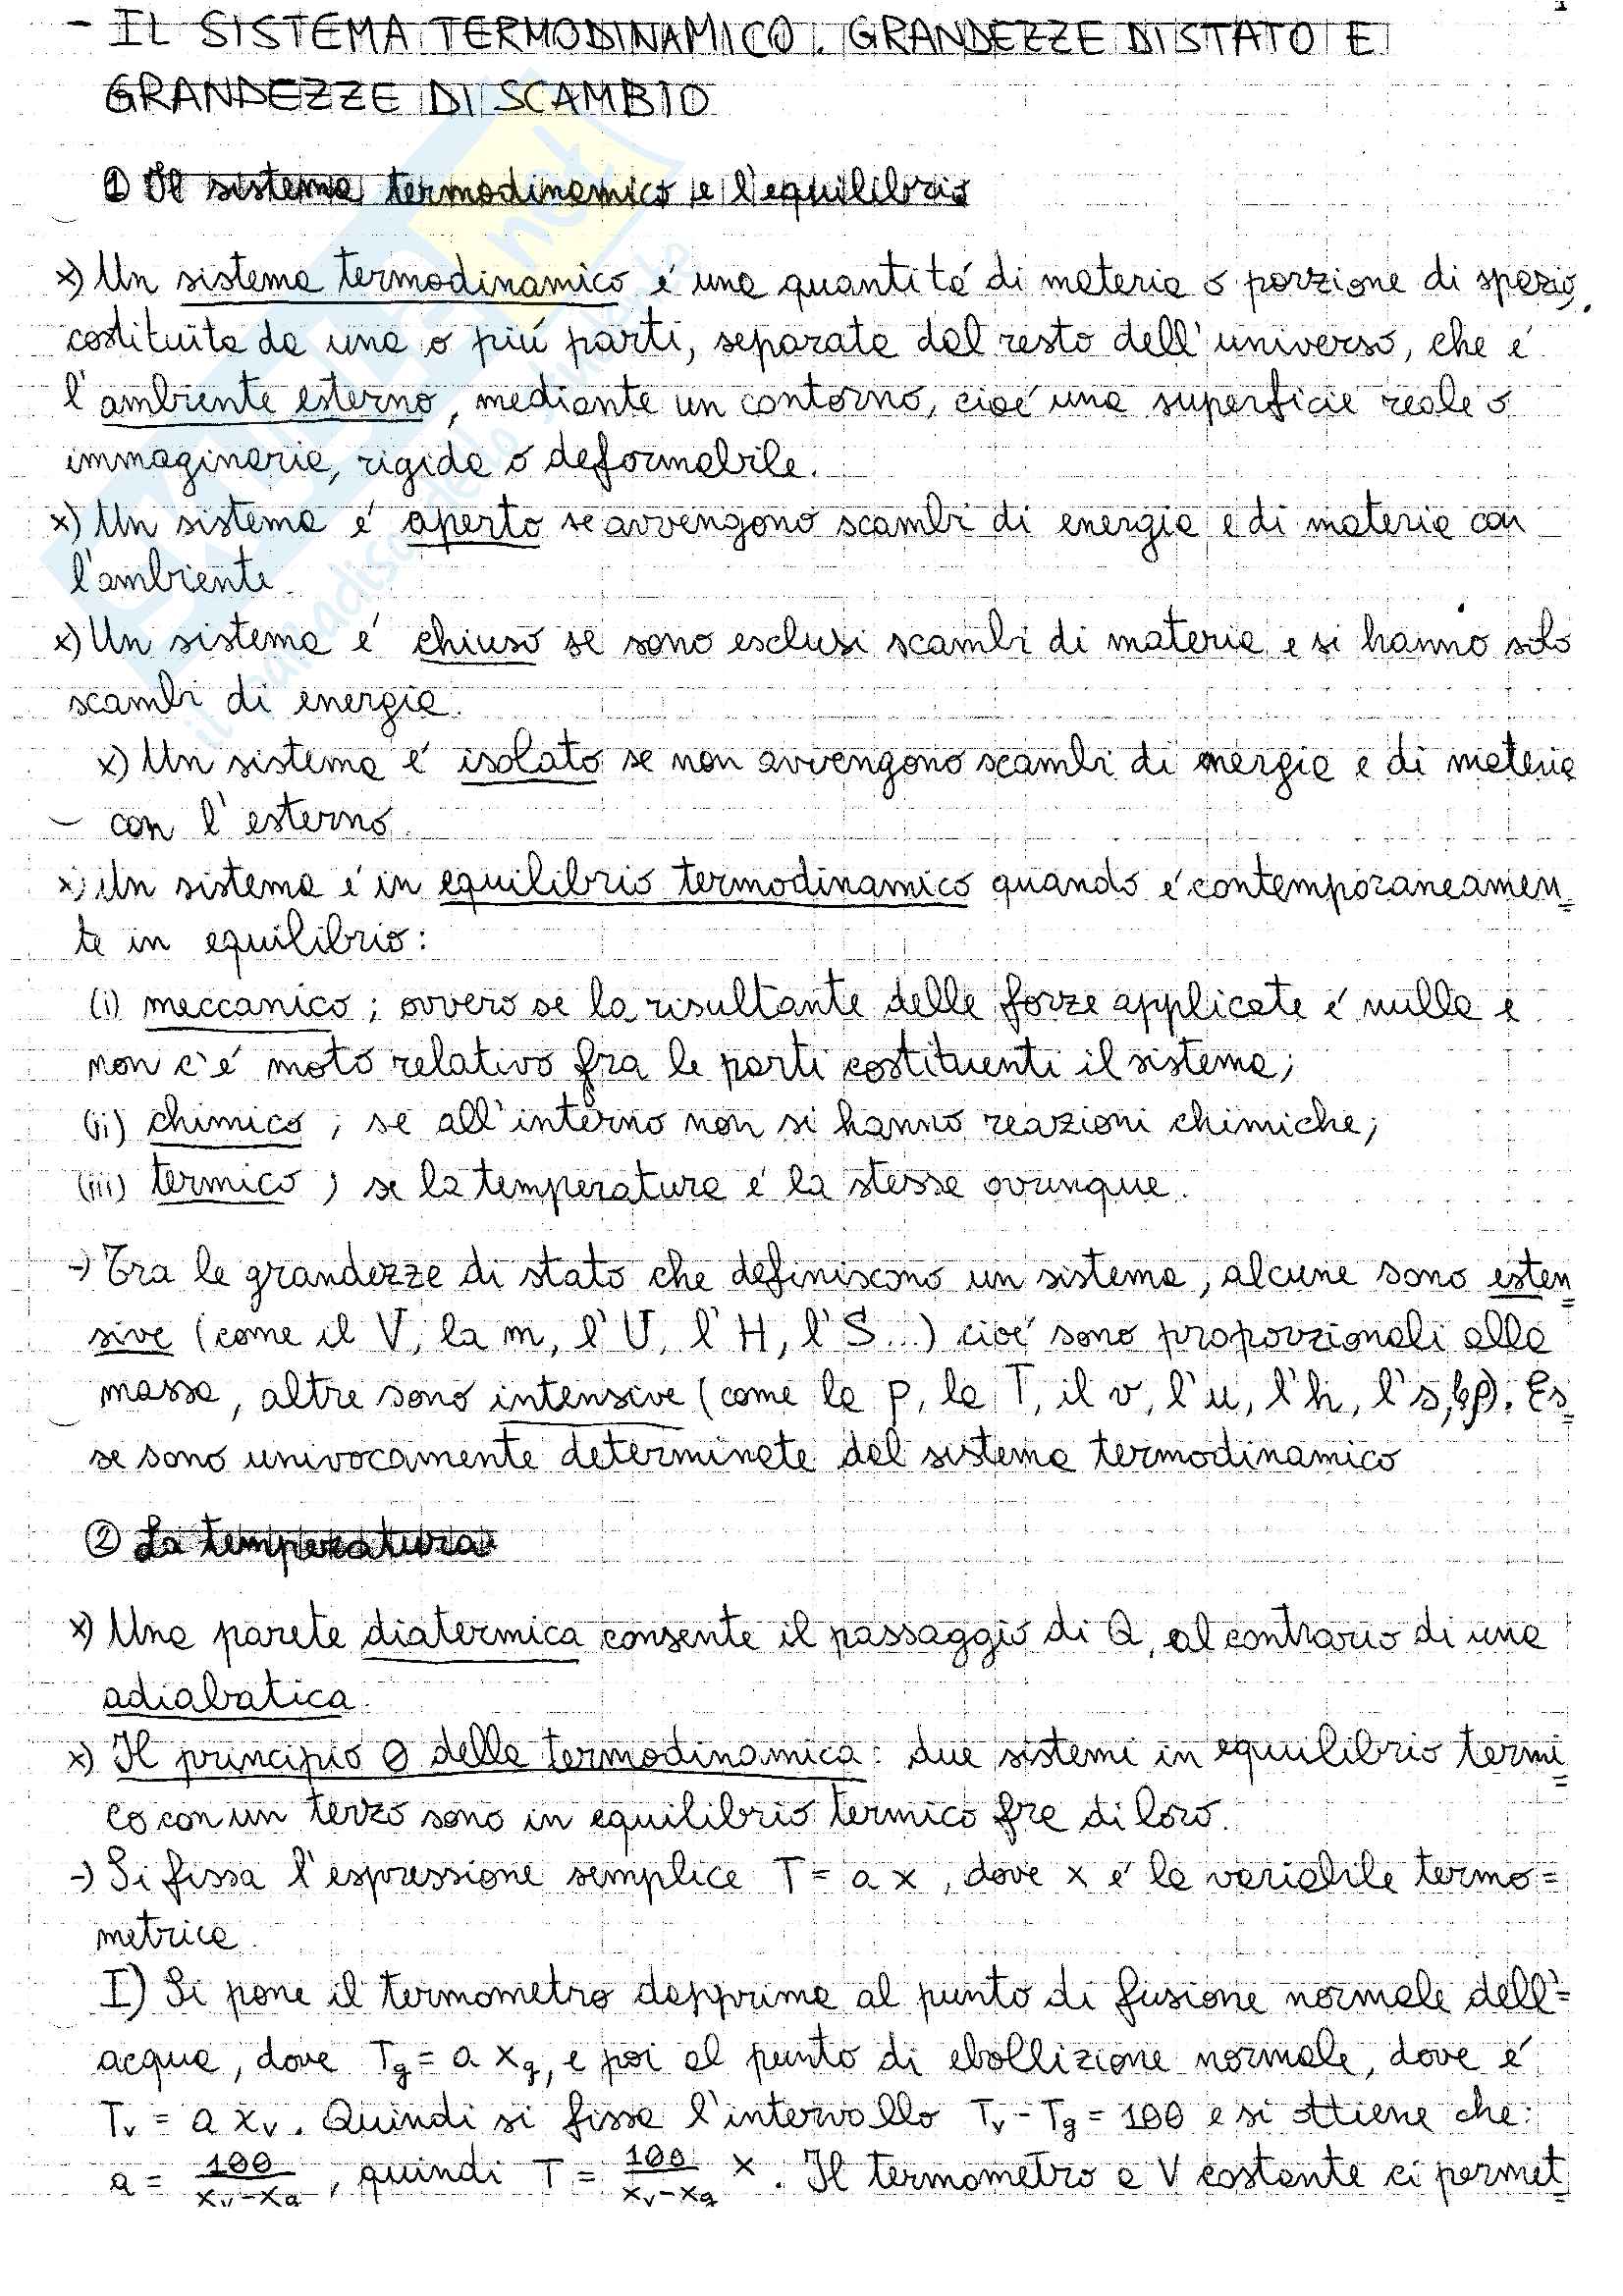 1
- IL SISTEMA TERMODINAMICO. GRANDEZZE DI STATO E
GRANDEZZE DI SCAMBIO
① Il sistema termodinamico e l'equilibrio
x) Un sistema termodinamico é una quantitá di materia o porzione di spazio,
costituita da una o piú parti, separata dal resto dell'universo, che é
l'ambiente esterno, mediante un contorno, cioé una superficie reale o
immaginaria, rigida o deformabile.
x) Un sistema é aperto se avvengono scambi di energia e di materia con
l'ambiente.
x) Un sistema é chiuso se sono esclusi scambi di materia e si hanno solo
scambi di energia.
x) Un sistema é isolato se non avvengono scambi di energia e di materia
con l'esterno.
x) Un sistema é in equilibrio termodinamico quando é contemporaneamen=
te in equilibrio:
(i) meccanico; ovvero se la risultante delle forze applicate é nulla e
non c'é moto relativo fra le parti costituenti il sistema;
(ii) chimico; se all'interno non si hanno reazioni chimiche;
(iii) termico; se la temperatura é la stessa ovunque.
→ Tra le grandezze di stato che definiscono un sistema, alcune sono esten=
sive (come il V, la m, l'U, l'H, l'S...) cioé sono proporzionali alla
massa, altre sono intensive (come la p, la T, il v, l'u, l'h, l's, la ρ). Es=
se sono univocamente determinate dal sistema termodinamico
② La temperatura
x) Una parete diatermica consente il passaggio di Q, al contrario di una
adiabatica.
x) Il principio 0 della termodinamica: due sistemi in equilibrio termi=
co con un terzo sono in equilibrio termico fra di loro.
→ Si fissa l'espressione semplice T = a x, dove x é la variabile termo=
metrica.
I) Si pone il termometro dapprima al punto di fusione normale dell'=
acqua, dove Tg = a xg, e poi al punto di ebollizione normale, dove é
Tv = a xv. Quindi si fissa l'intervallo Tv - Tg = 100 e si ottiene che:
a = 100/(xv-xg), quindi T = 100/(xv-xg) x. Il termometro a V costante ci permet=